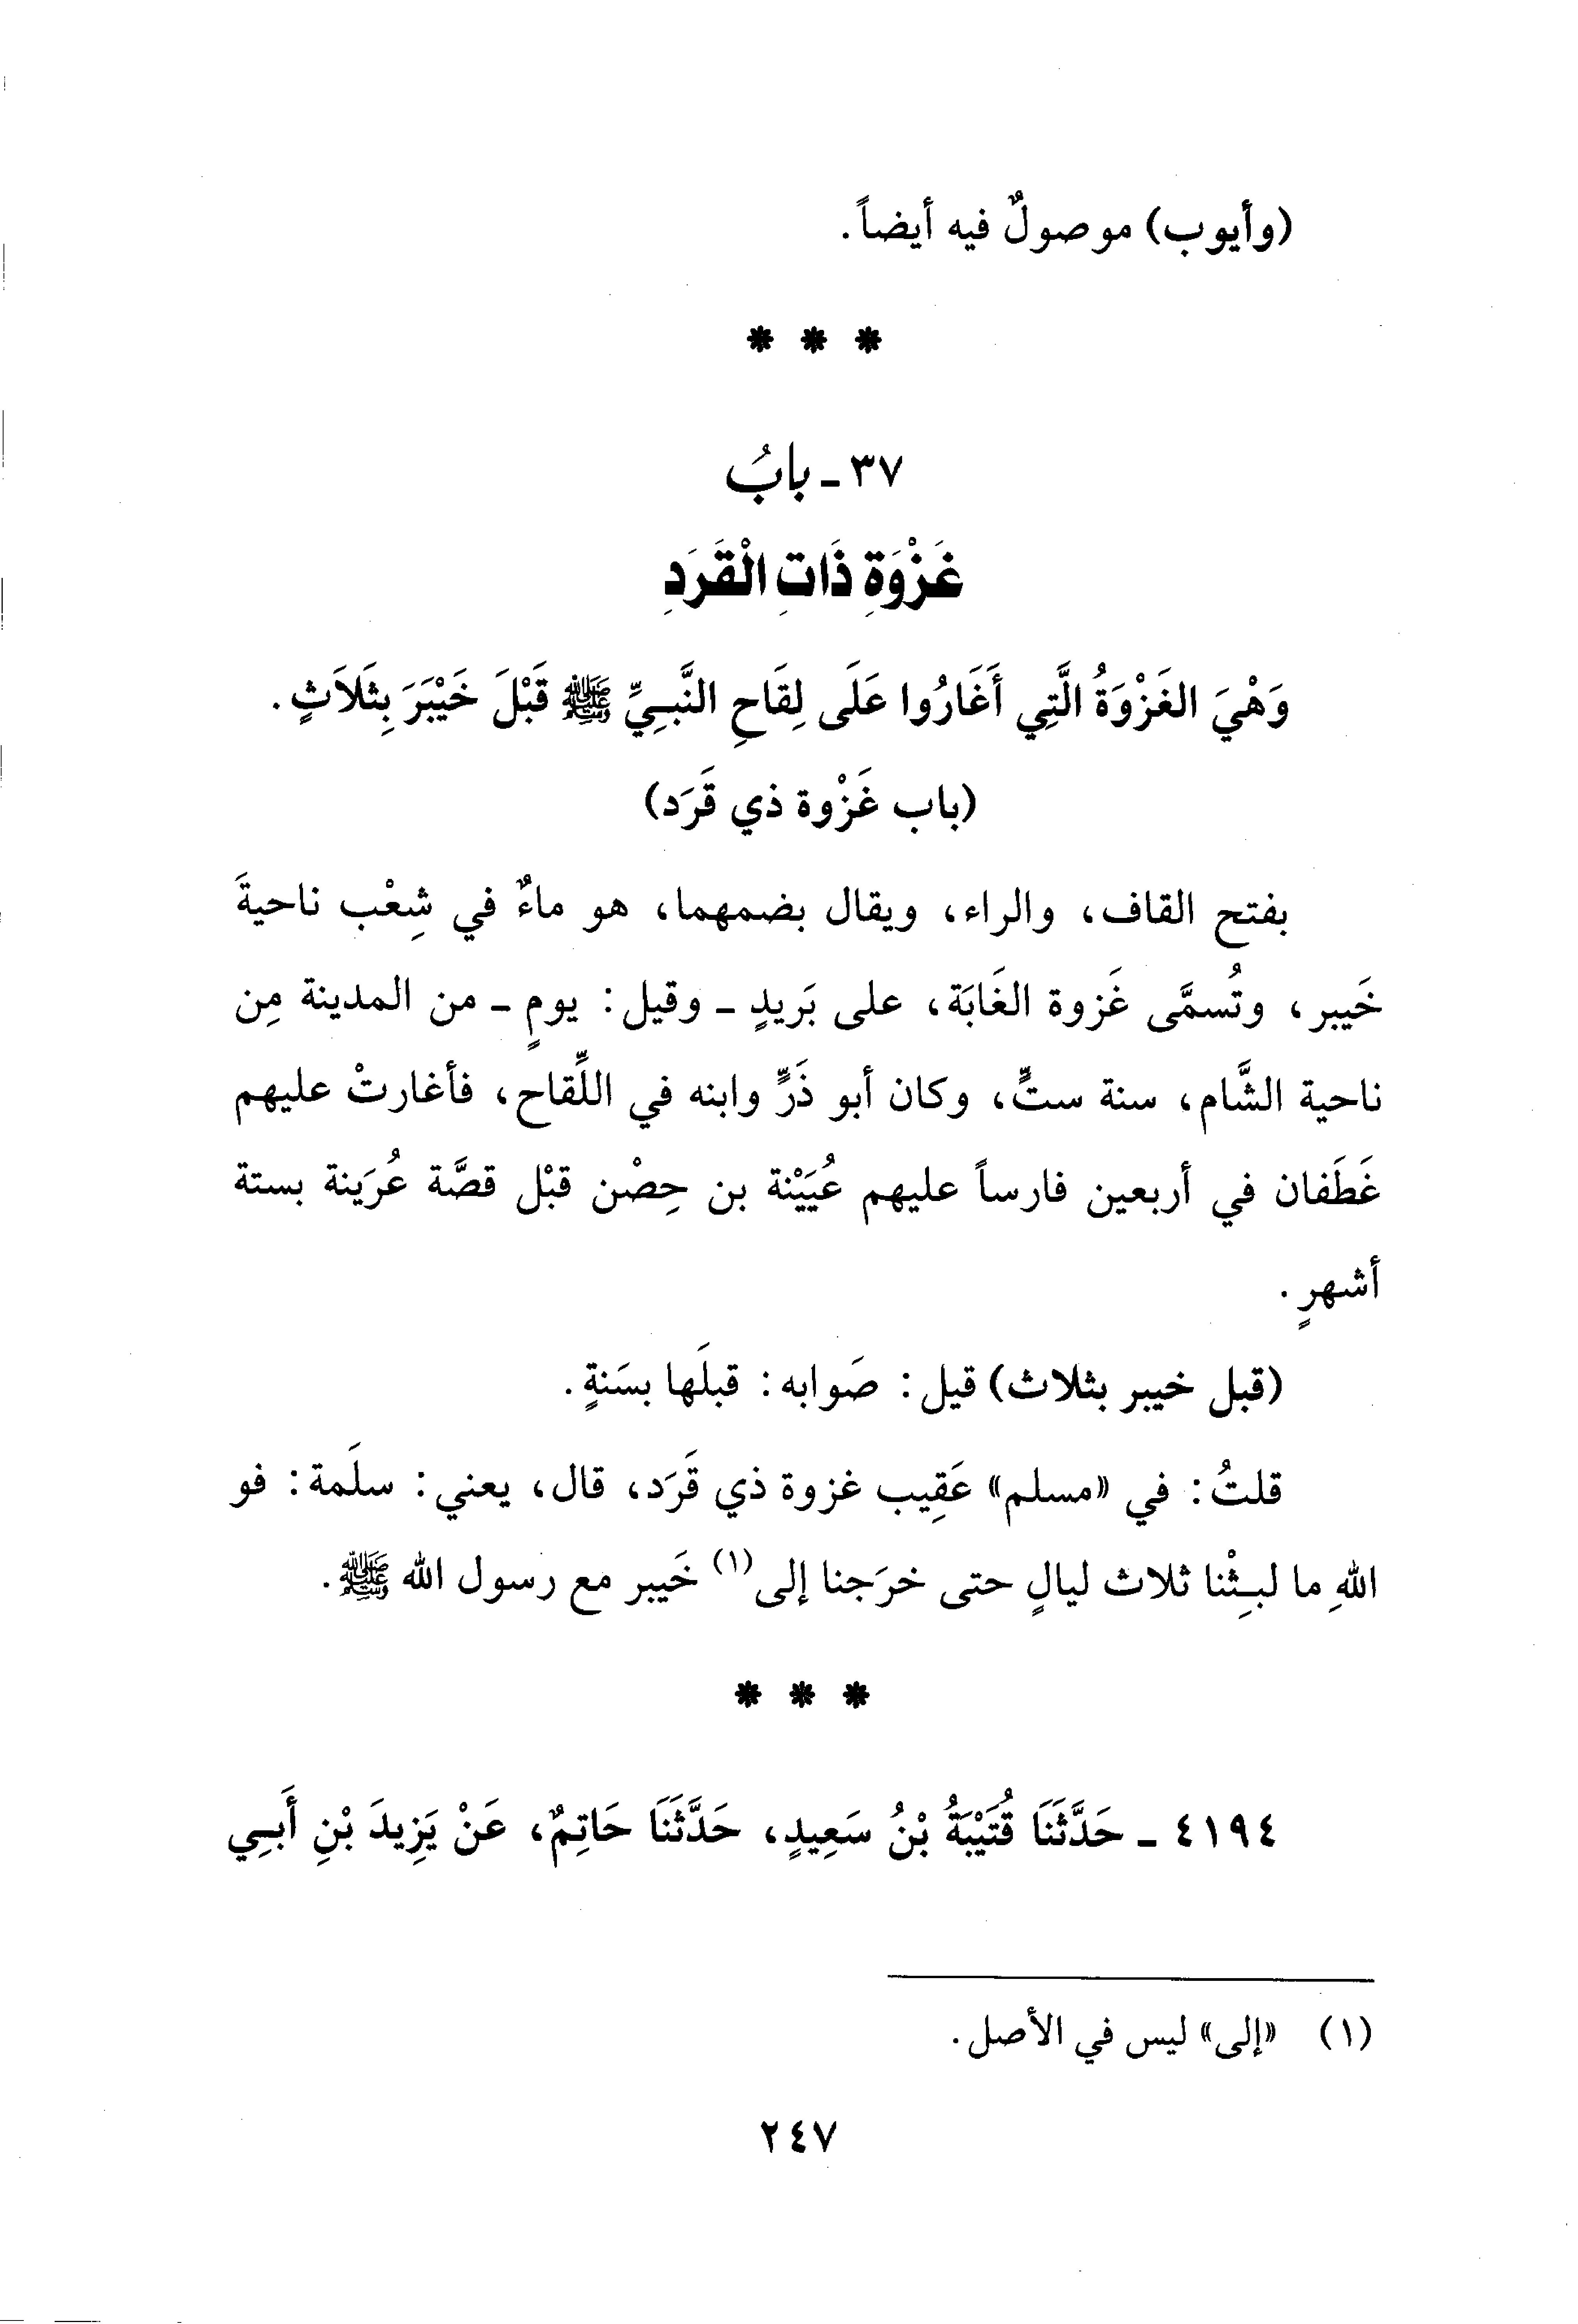 (وأيوب) موصولٌ فيه أيضاً.
* * *
٣٧ - بابُ
غَزْوَةِ ذَاتِ الْقَرَدِ
وَهْيَ الغَزْوَةُ الَّتِي أَغَارُوا عَلَى لِقَاحِ النَّبِيِّ ﷺ قَبْلَ خَيْبَرَ بِثَلاَثٍ.
(باب غَزْوة ذي قَرَد)
بفتح القاف، والراء، ويقال بضمهما، هو ماءٌ في شِعْب ناحيةَ
خَيبر، وتُسمَّى غَزوة الغَابَة، على بَريدٍ - وقيل: يومٍ - من المدينة مِن
ناحية الشَّام، سنة ستٍّ، وكان أبو ذَرٍّ وابنه في اللِّقاح، فأغارتْ عليهم
غَطَفان في أربعين فارساً عليهم عُيَيْنة بن حِصْن قبْل قصَّة عُرَينة بستة
أشهرٍ.
(قبل خيبر بثلاث) قيل: صَوابه: قبلَها بسَنةٍ.
قلتُ: في «مسلم» عَقِيب غزوة ذي قَرَد، قال، يعني: سلَمة: فو
اللهِ ما لبِثْنا ثلاث ليالٍ حتى خرَجنا إلى(١) خَيبر مع رسول الله ﷺ.
* * *
٤١٩٤ - حَدَّثَنَا قُتَيْبَةُ بْنُ سَعِيدٍ، حَدَّثَنَا حَاتِمٌ، عَنْ يَزِيدَ بْنِ أَبِي
(١) «إلى» ليس في الأصل.
٢٤٧